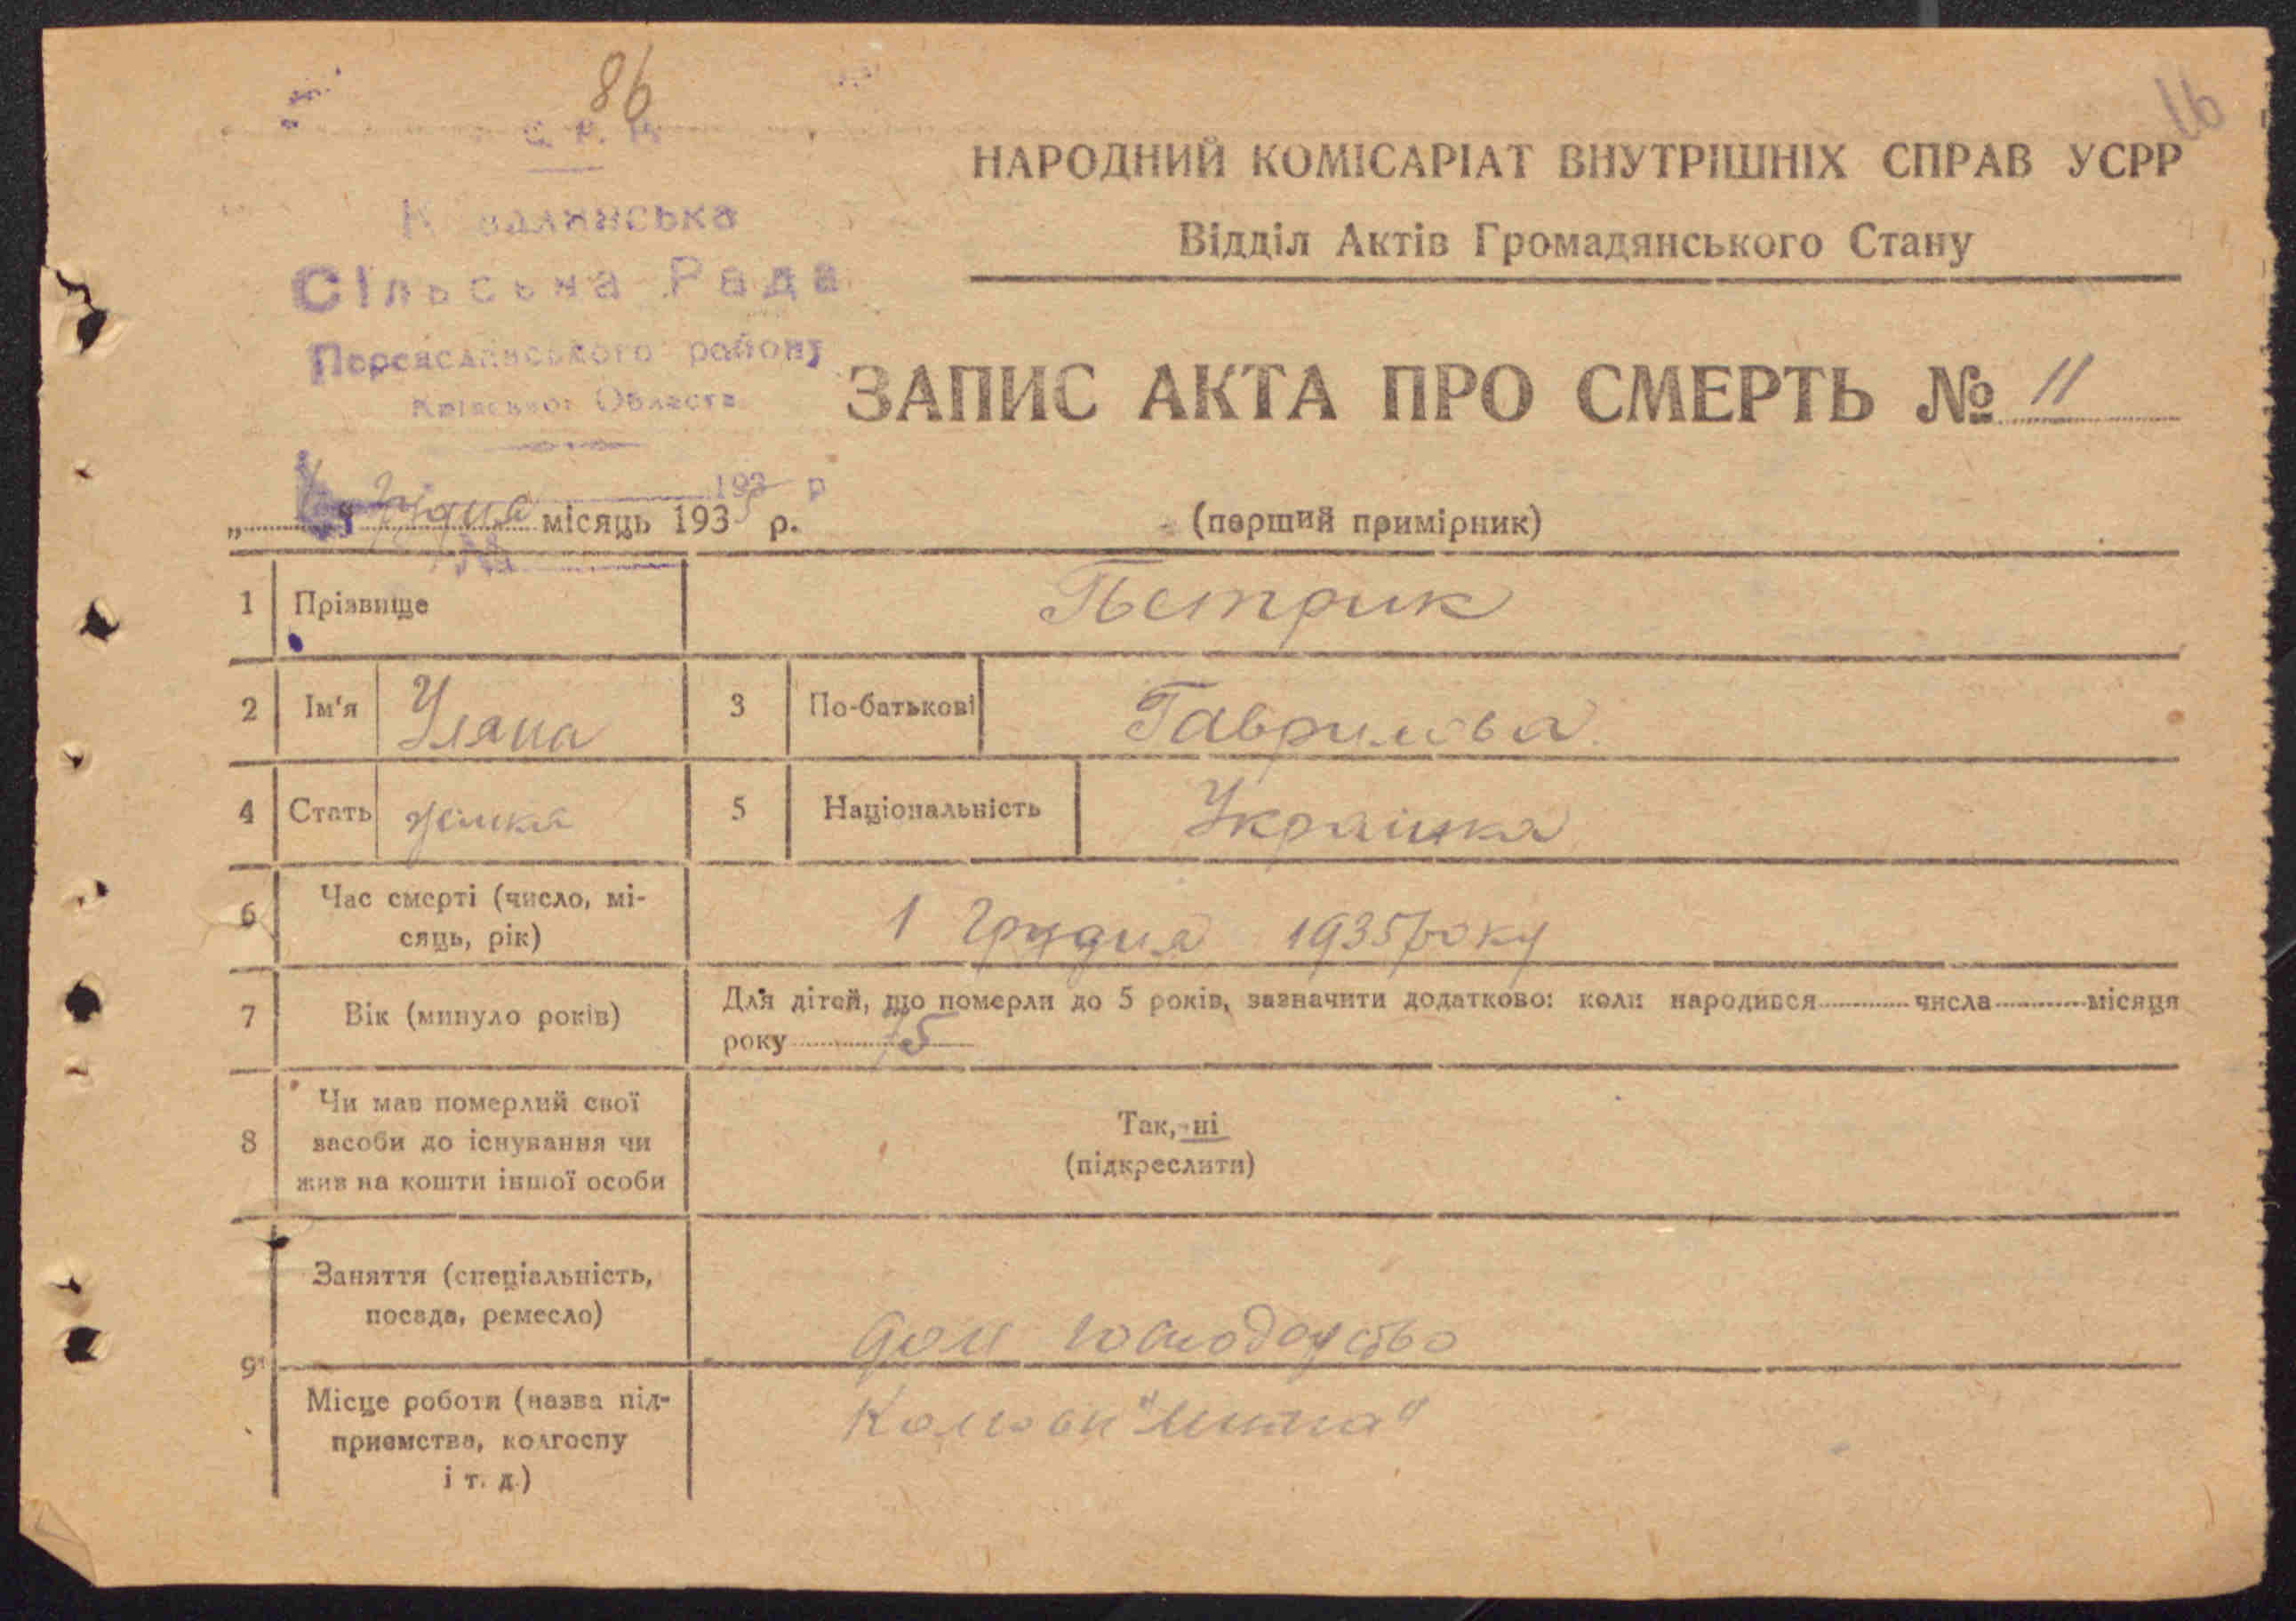 86
16
У. С. Р. Р.
НАРОДНИЙ КОМІСАРІАТ ВНУТРІШНІХ СПРАВ УСРР
Відділ Актів Громадянського Стану
Сільська Рада
Переяславського району
Київської Области
ЗАПИС АКТА ПРО СМЕРТЬ № 11
193 р
„ " грудня місяць 1935 р.
(перший примірник)
№
1 Прізвище Пєтрик
2 Ім'я Уляна 3 По-батькові Гаврилова
4 Стать жінка 5 Національність Українка
6 Час смерті (число, мі-
сяць, рік) 1 Грудня 1935 року
7 Вік (минуло років) Для дітей, що померли до 5 років, зазначити додатково: коли народився числа місяця
року 75
8 Чи мав померлий свої
засоби до існування чи
жив на кошти іншої особи
Так, ні
(підкреслити)
9 Заняття (спеціальність,
посада, ремесло) дом господарство
Місце роботи (назва під-
приємства, колгоспу
і т. д.)